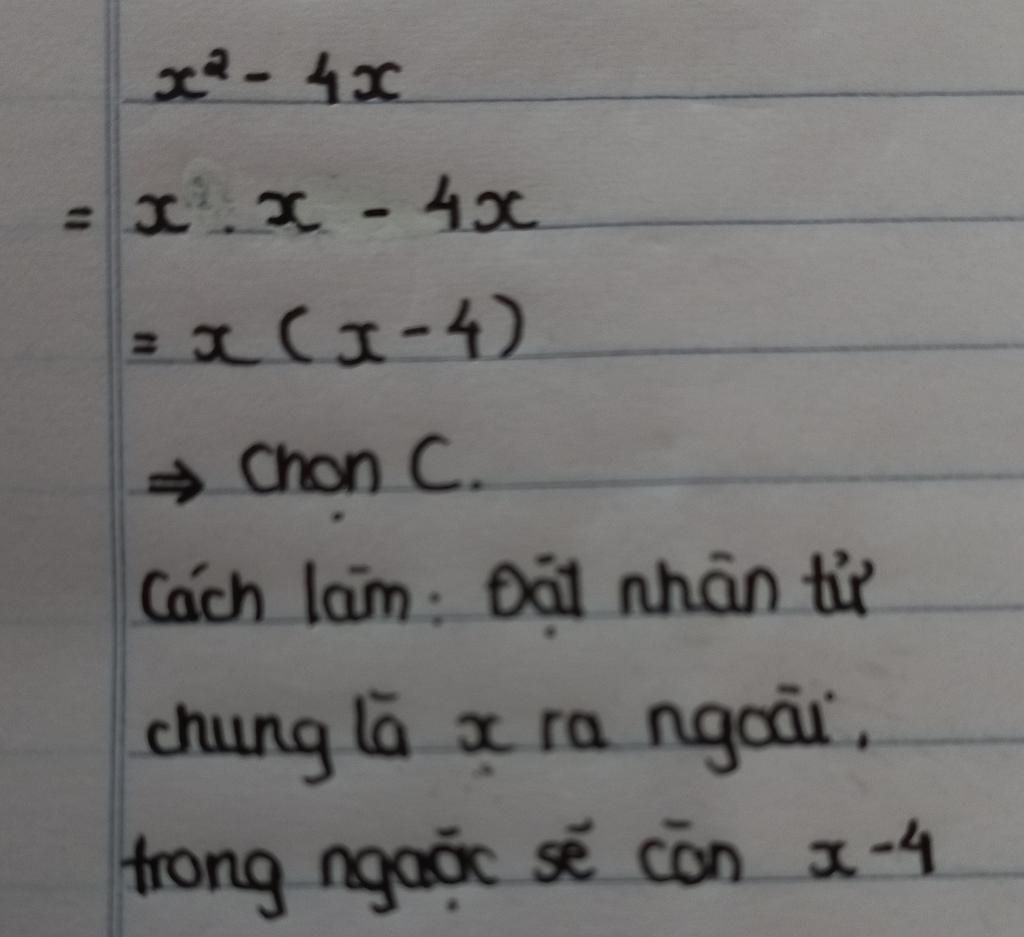 x² - 4x
= x . x - 4x
= x ( x - 4 )
⇒ Chọn C.
Cách làm: Đặt nhân tử
chung là x ra ngoài,
trong ngoặc sẽ còn x - 4